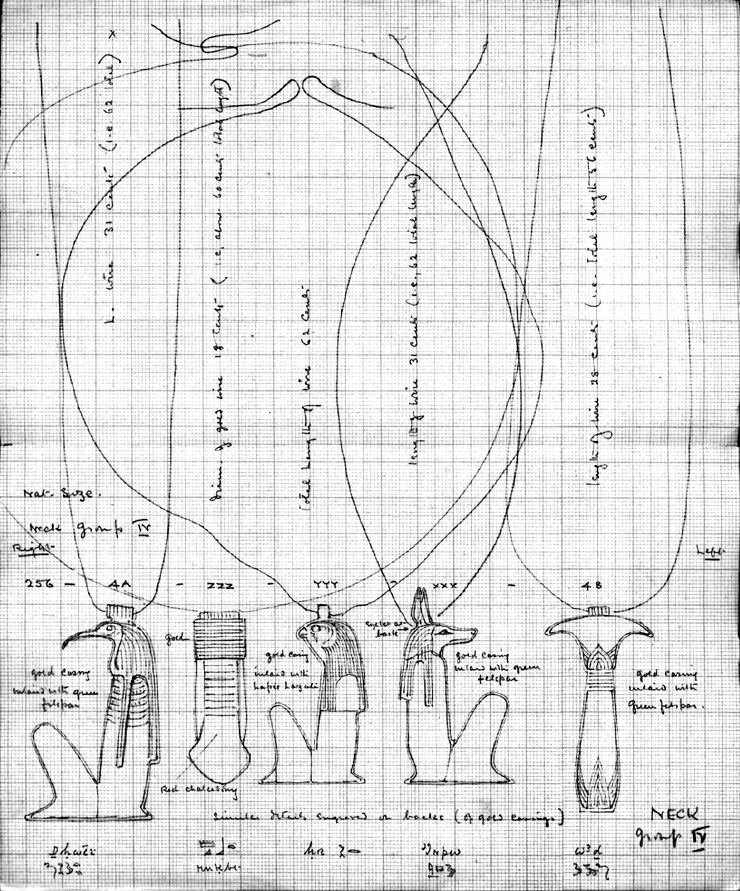 L. wire 31 cents (i.e. 62 total) x
Diam. of gold wire 18 cents (i.e., abou. 60 cents total length)
total length of wire 62 cents
length of wire 31 cents (i.e., 62 total length)
length of wire 28 cents (i.e. total length 56 cents)
Nat. Size.
Neck group IV
Right
Left
256 - 4A - ZZZ - YYY - XXX - 4B
gold casing
inlaid with green
felspar
gold
Red chalcedony
gold casing
inlaid with
lapis lazuli
eyelet at
back
gold casing
inlaid with green
felspar
gold casing
inlaid with
green felspar.
Similar details engraved on backs (of gold casings)
NECK
group IV
Dhwti
mnkbit
hr
Inpw
w3d